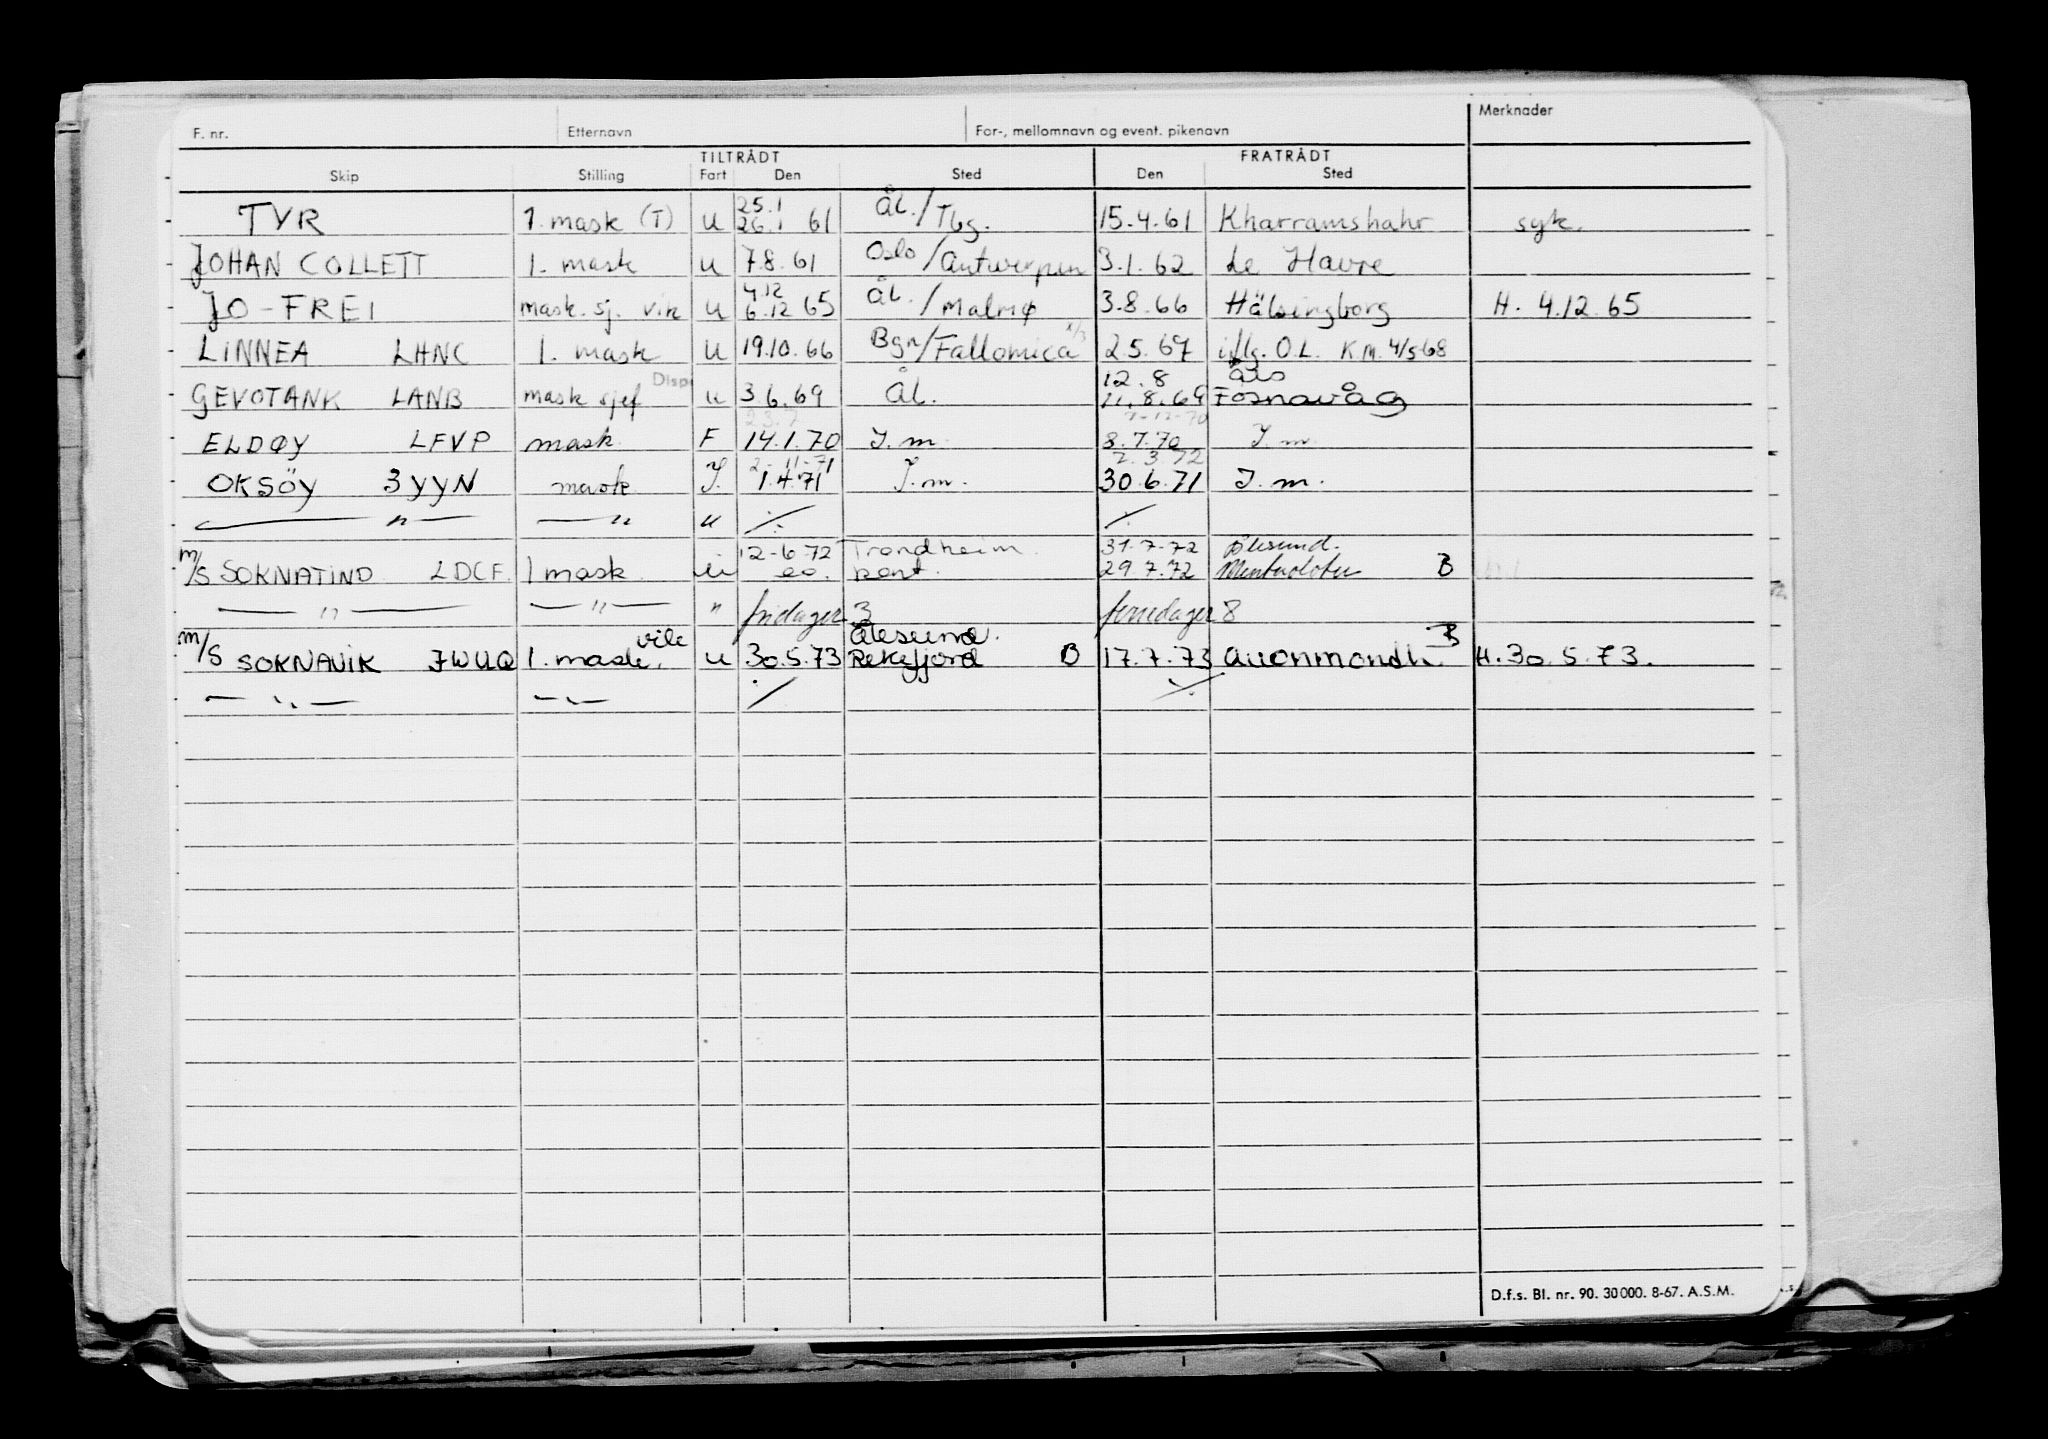 F. nr. Etternavn For-, mellomnavn og event. pikenavn Merknader
TILTRÅDT FRATRÅDT
Skip Stilling Fart Den Sted Den Sted
25.1 Ål./
TYR 1. mask (T) u 26.1 61 Tbg. 15.4.61 Kharramshahr syk.
JOHAN COLLETT 1. mask u 7.8.61 Oslo/Antwerpen 3.1.62 Le Havre
4.12 Ål./
JO-FREI mask. sj. vik u 6.12 65 Malmø 3.8.66 Hälsingborg H. 4.12.65
LINNEA LHNC 1. mask u 19.10.66 Bgn/Fallomica 2.5.67 iflg. O.L. K.M. 4/5-68
Disp 12.8 Åls
GEVOTANK LANB mask sjef u 3.6.69 Ål. 11.8.69 Fosnavåg
23.7 7-12-70
ELDØY LFVP mask. F 14.1.70 J.m. 8.7.70 J.m.
2-11-71 2.3.72
OKSÖY 3YYN mask J. 1.4.71 J.m. 30.6.71 J.m.
— " — — " u ./. ./.
12-6-72 Trondheim. 31.7.72 Ålesund.
m/S SOKNATIND LDCF. 1 mask u eo. kont. 29.7.72 B
— " — — " — " fridager 3 feriedager 8
vik Ålesund. B
m/S SOKNAVIK JWUQ 1. mask. u 30.5.73 Rekefjord B 17.7.73 Avonmondh. H. 30.5.73.
— " — — " — ./. ./.
D.f.s. Bl. nr. 90. 30 000. 8-67. A.S.M.